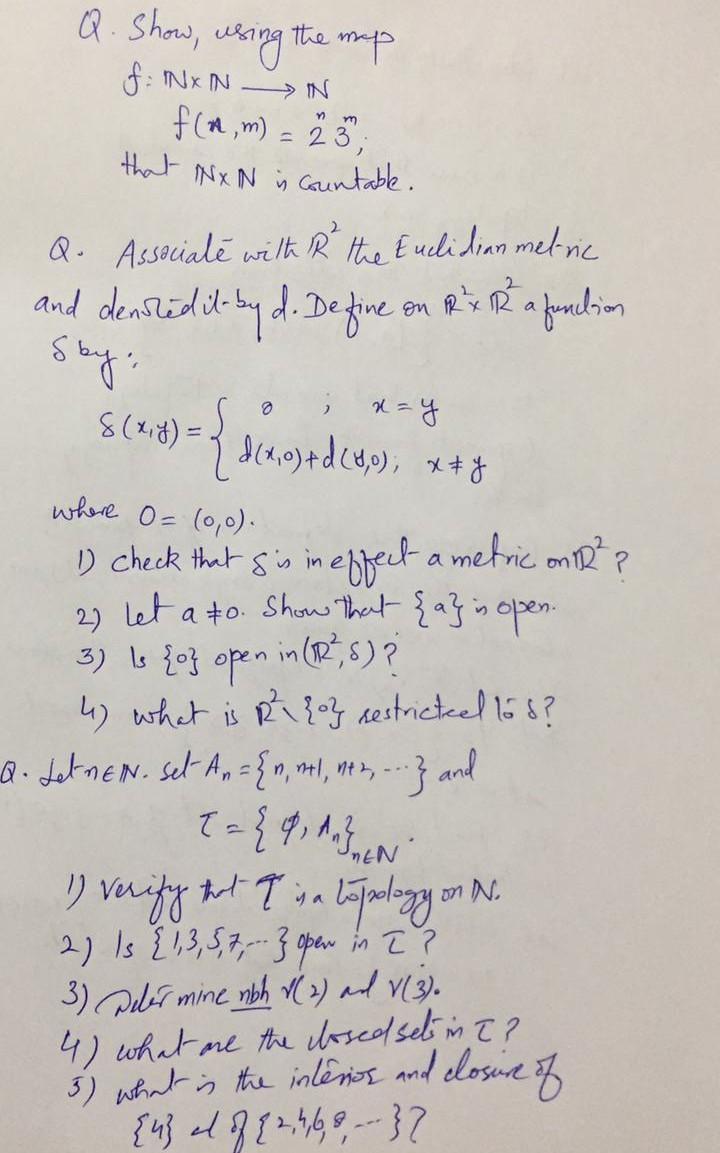 Q. Show, using the map
f: ℕ×ℕ ⟶ ℕ
f(n,m) = 2ⁿ 3ᵐ,
that ℕ×ℕ is countable.
Q. Associate with ℝ² the Euclidian metric
and denoted it by d. Define on ℝ²×ℝ² a function
δ by:
δ(x,y) = { 0 ; x = y
d(x,0)+d(y,0); x ≠ y
where 0 = (0,0).
1) check that δ is in effect a metric on ℝ²?
2) Let a ≠ 0. Show that {a} is open.
3) Is {0} open in (ℝ²,δ)?
4) what is ℝ²\{0} restricted to δ?
Q. Let n∈ℕ. set Aₙ = {n, n+1, n+2, ...} and
τ = {φ, Aₙ}ₙ∈ℕ.
1) Verify that τ is a topology on ℕ.
2) Is {1,3,5,7,...} open in τ?
3) Determine nbh V(2) and V(3).
4) what are the closed sets in τ?
5) what is the interior and closure of
{4} and of {2,4,6,8,...}?